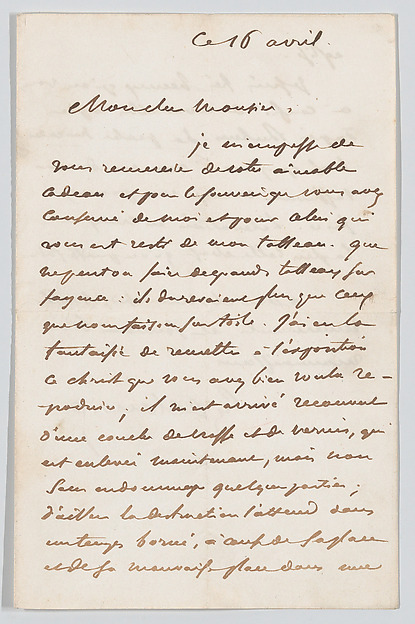 Ce 16 avril.
Mon cher Monsieur,
je m'empresse de
vous remercier de votre aimable
cadeau et pour le souvenir que vous avez
conservé de moi et pour celui qui
vous est resté de mon tableau. que
ne peut on faire de grands tableaux sur
fayence : ils dureraient plus que ceux
que nous faisons sur toile. J'ai eu la
fantaisie de remettre à l'exposition
ce christ que vous avez bien voulu re-
produire; il m'est arrivé recouvert
d'une couche de et de vernis, qui
est enlevée maintenant, mais non
sans endommager quelques parties;
d'ailleurs la destruction l'attend dans
un temps borné, à cause de sa place
et de sa mauvaise place dans une